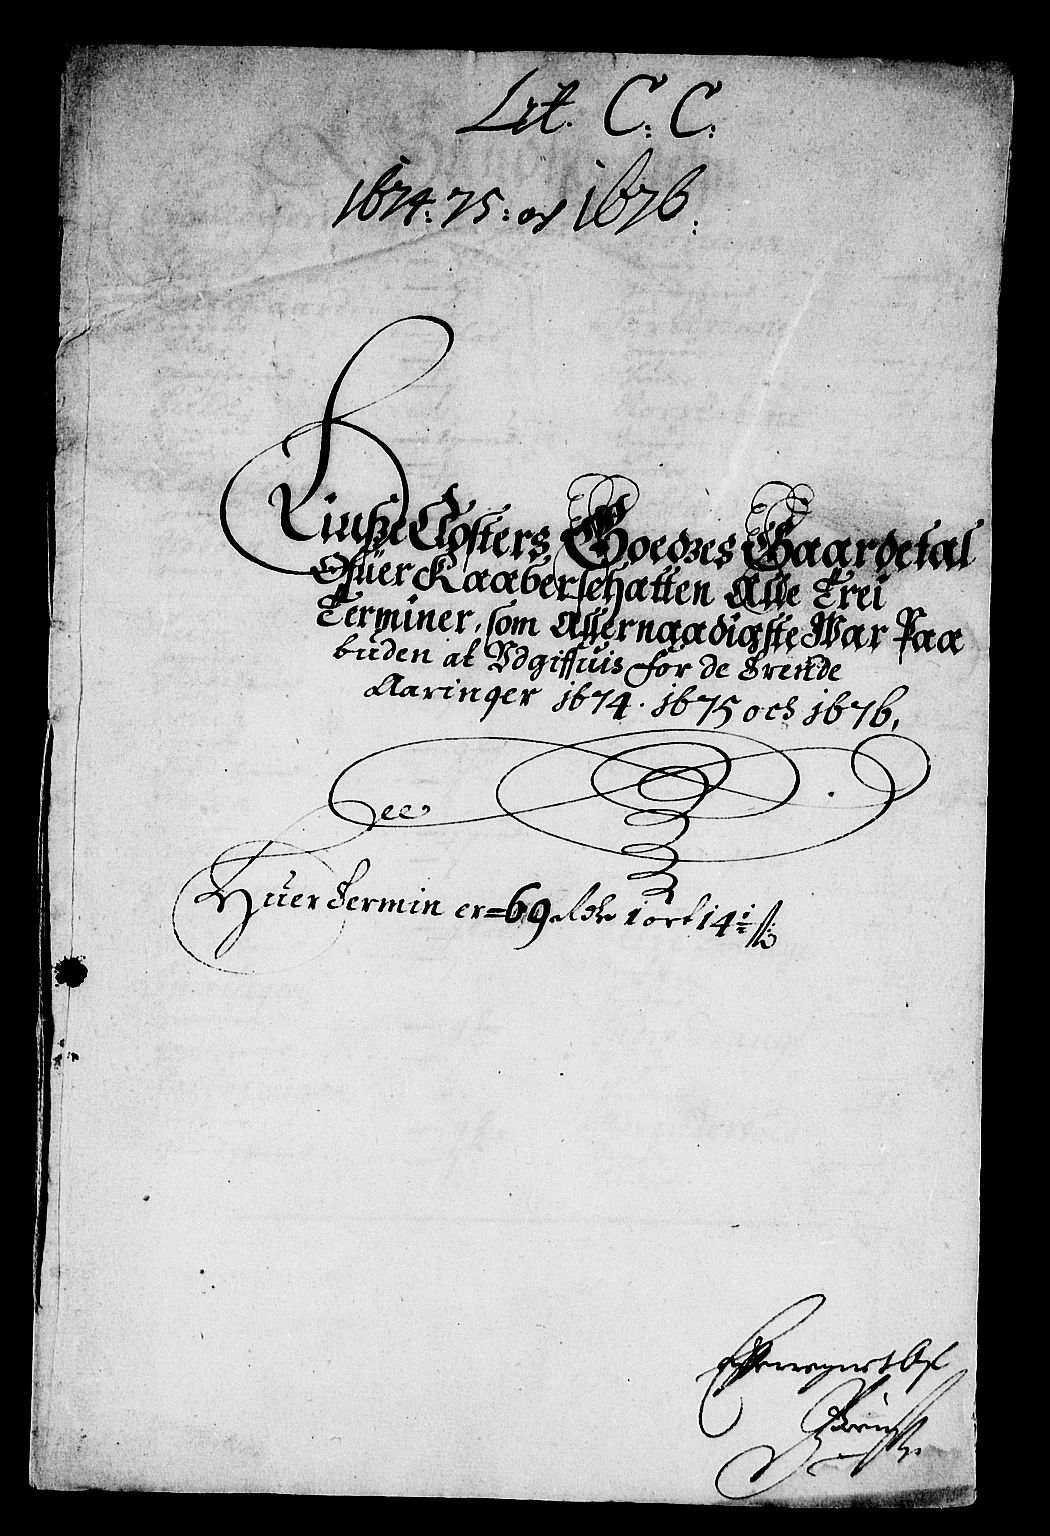 Lit. C: C:
1674: 75: og 1676:
Liuße Closters Goedzes Gaardetal
Ofuer Kaaberschatten Alle Trei
Terminer, som Allernaadigste War Paa
buden at Vdgiffuis for de Trende
Aaringer 1674. 1675 och 1676,
Huer Termin er=69 1 ort 14½ ß